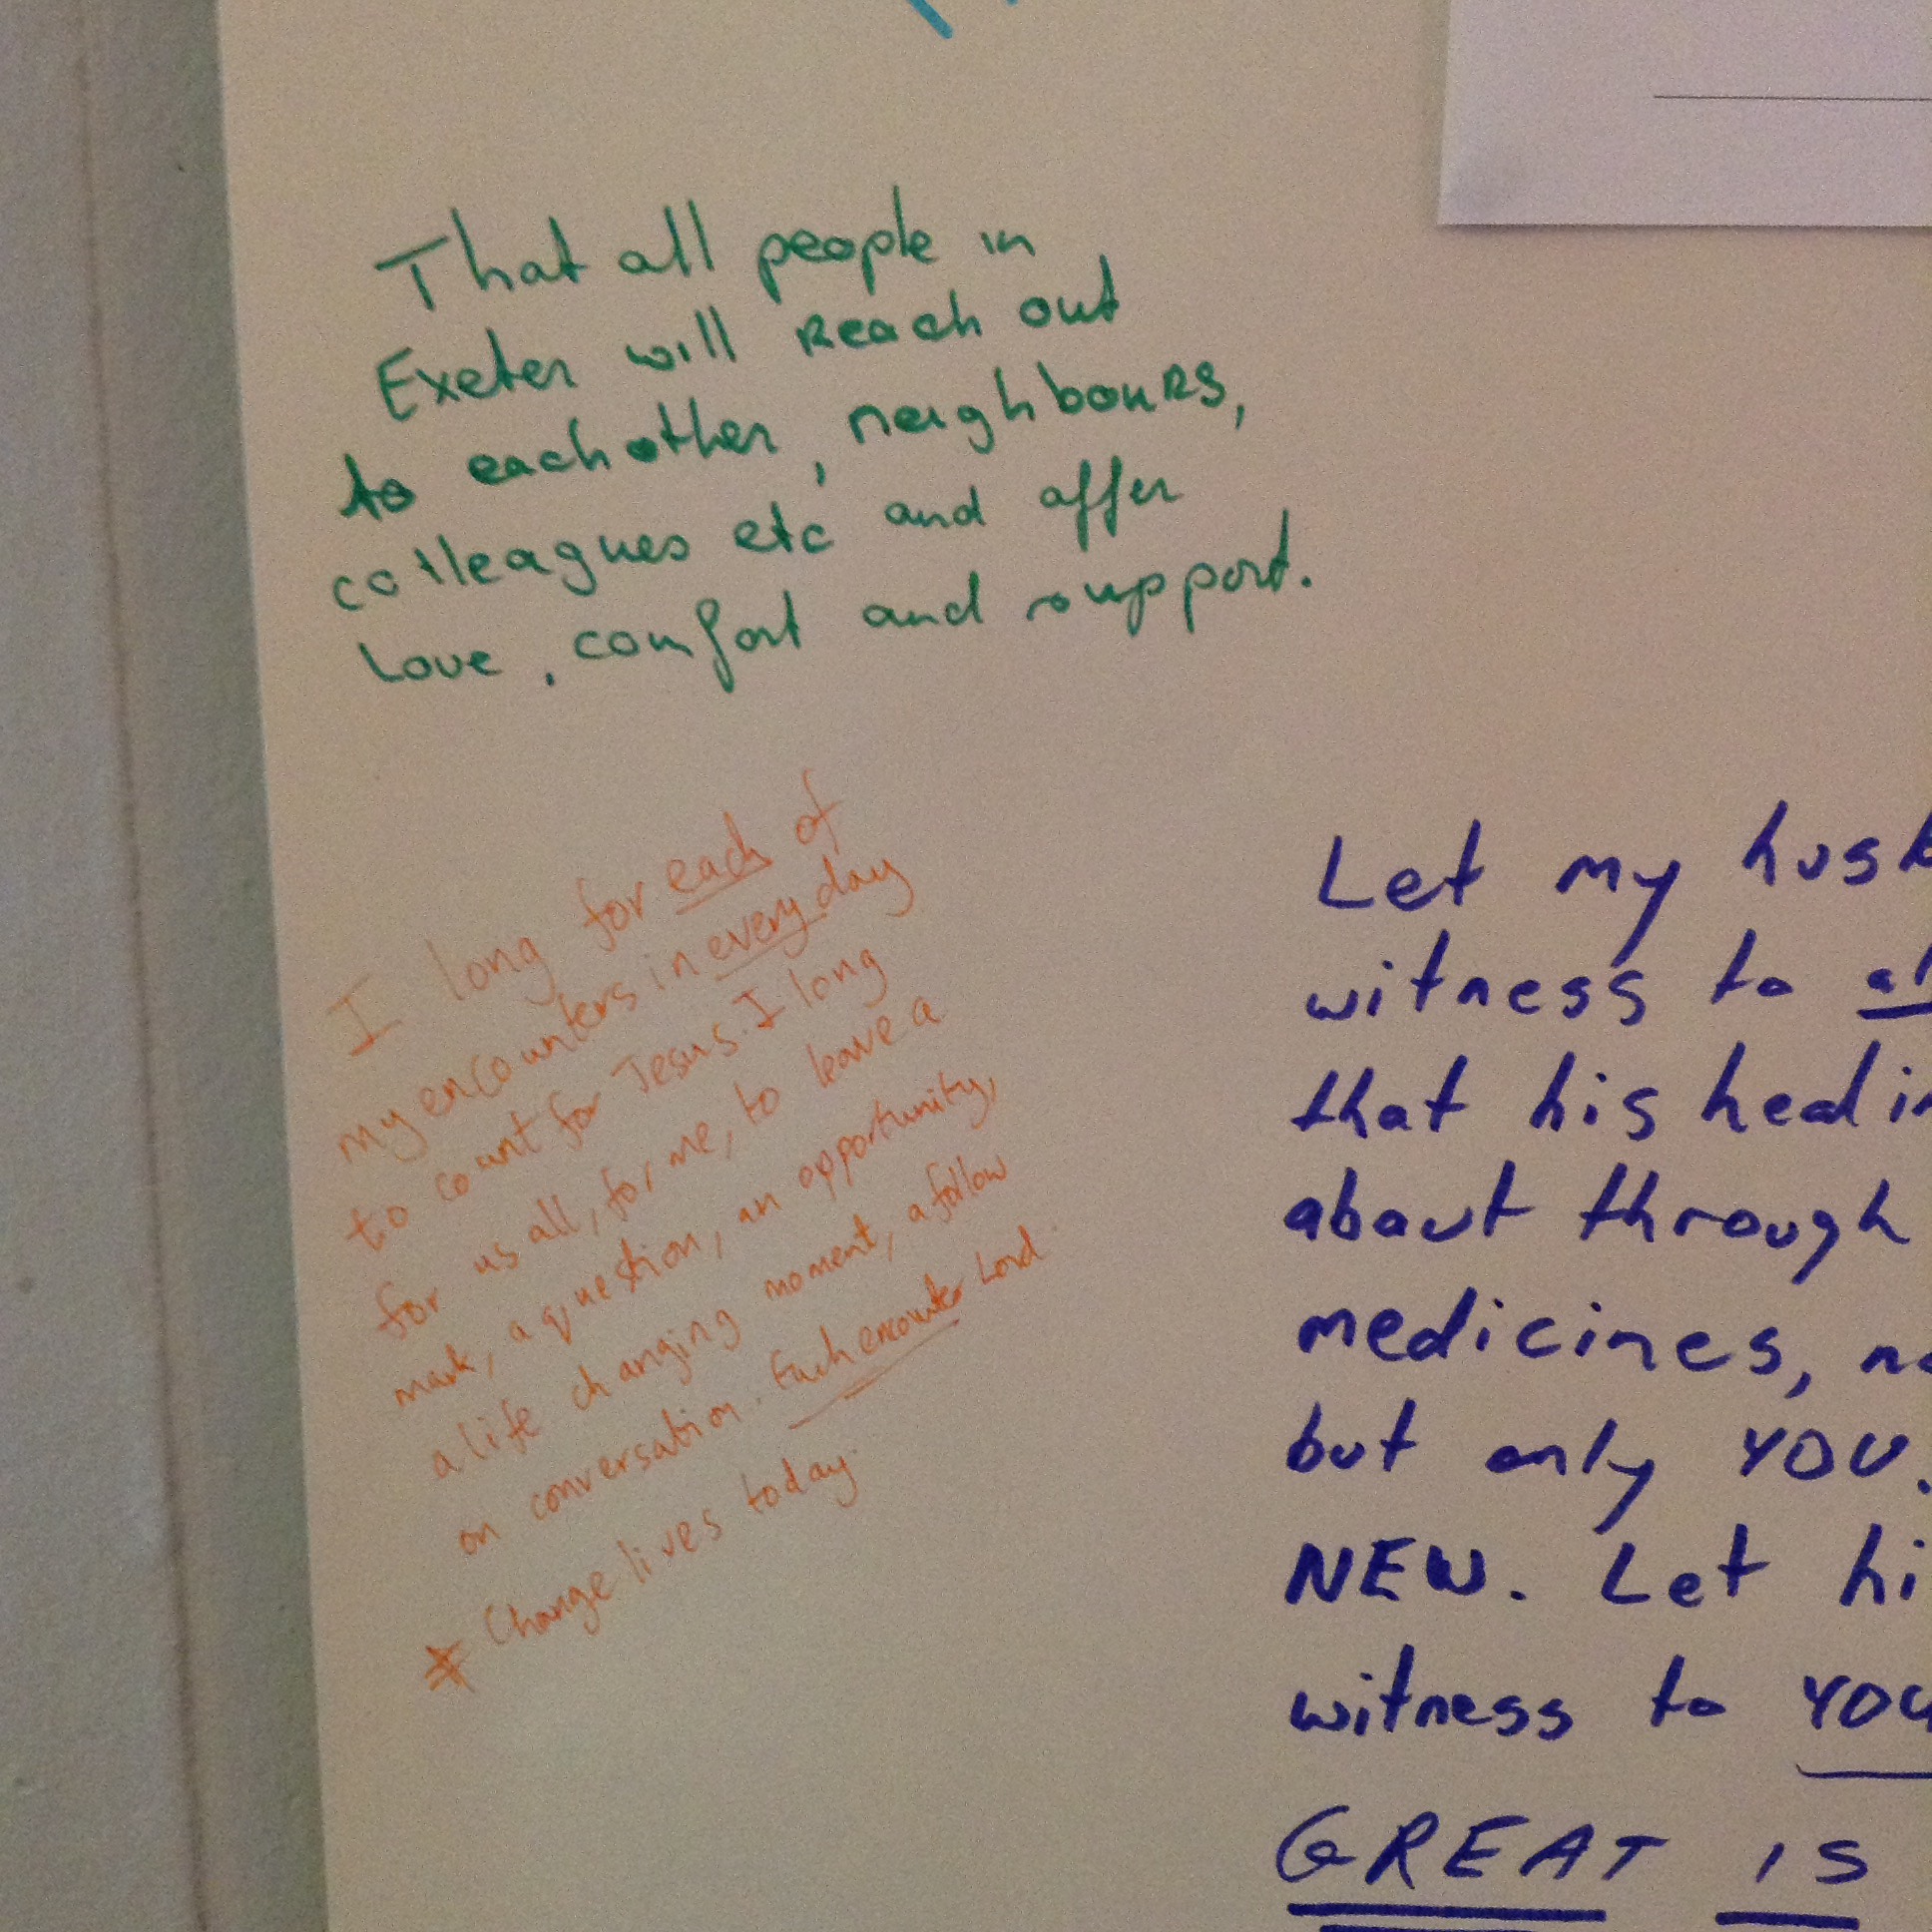 That all people in
Exeter will Reach out
to eachother, neighbouRS,
colleagues etc and offer
love, comfort and support.
I long for each of
my encounters in every day
to count for Jesus. I long
for us all, for me, to leave a
mark, a question, an opportunity,
a life changing moment, a follow
on conversation. Each encounter Lord.
* Change lives today.
Let my
witness to
that his
about through
medicines,
but only YOU.
NEW. Let
witness to
GREAT IS